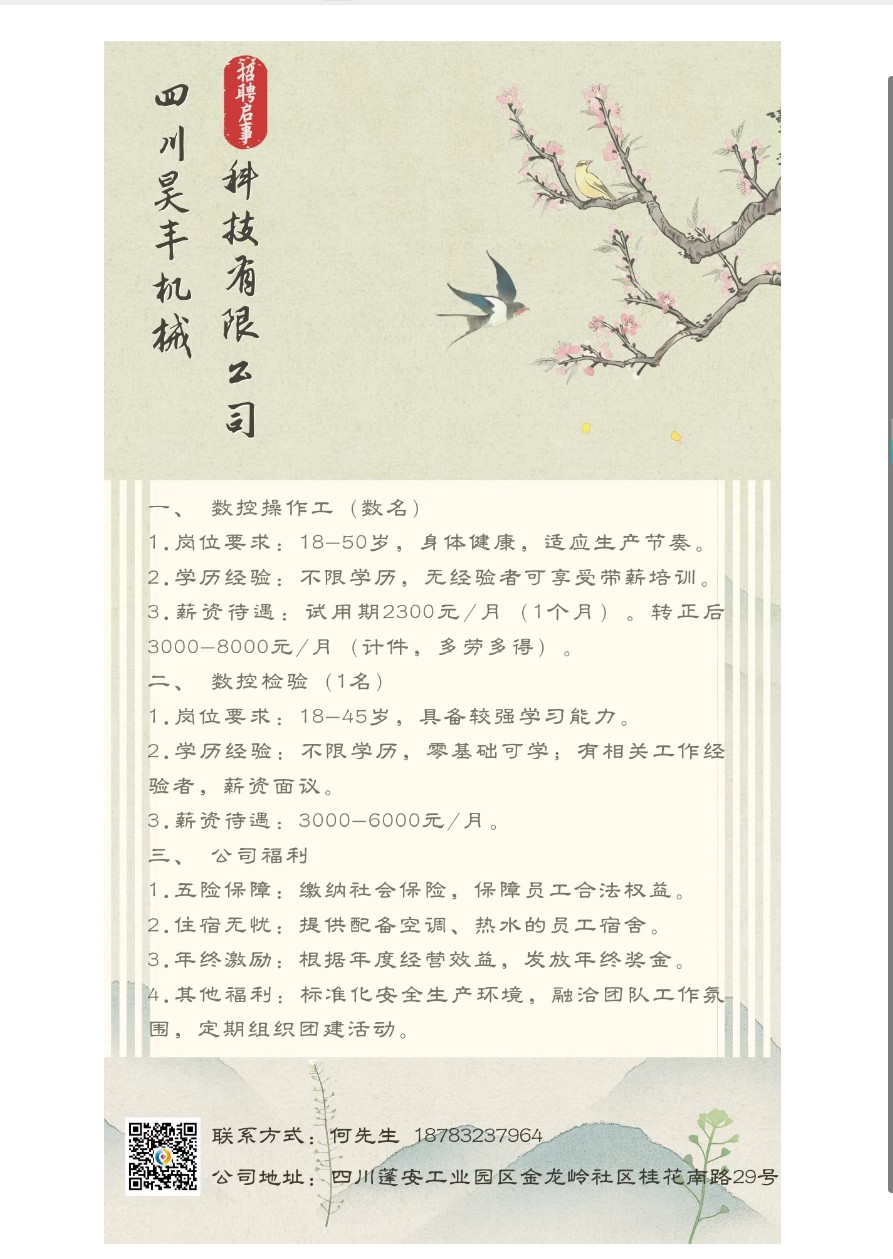 招聘启事
四川昊丰机械
科技有限公司
一、 数控操作工（数名）
1.岗位要求：18-50岁，身体健康，适应生产节奏。
2.学历经验：不限学历，无经验者可享受带薪培训。
3.薪资待遇：试用期2300元/月（1个月）。转正后
3000-8000元/月（计件，多劳多得）。
二、 数控检验（1名）
1.岗位要求：18-45岁，具备较强学习能力。
2.学历经验：不限学历，零基础可学；有相关工作经
验者，薪资面议。
3.薪资待遇：3000-6000元/月。
三、 公司福利
1.五险保障：缴纳社会保险，保障员工合法权益。
2.住宿无忧：提供配备空调、热水的员工宿舍。
3.年终激励：根据年度经营效益，发放年终奖金。
4.其他福利：标准化安全生产环境，融洽团队工作氛
围，定期组织团建活动。
联系方式：何先生 18783237964
公司地址：四川蓬安工业园区金龙岭社区桂花南路29号